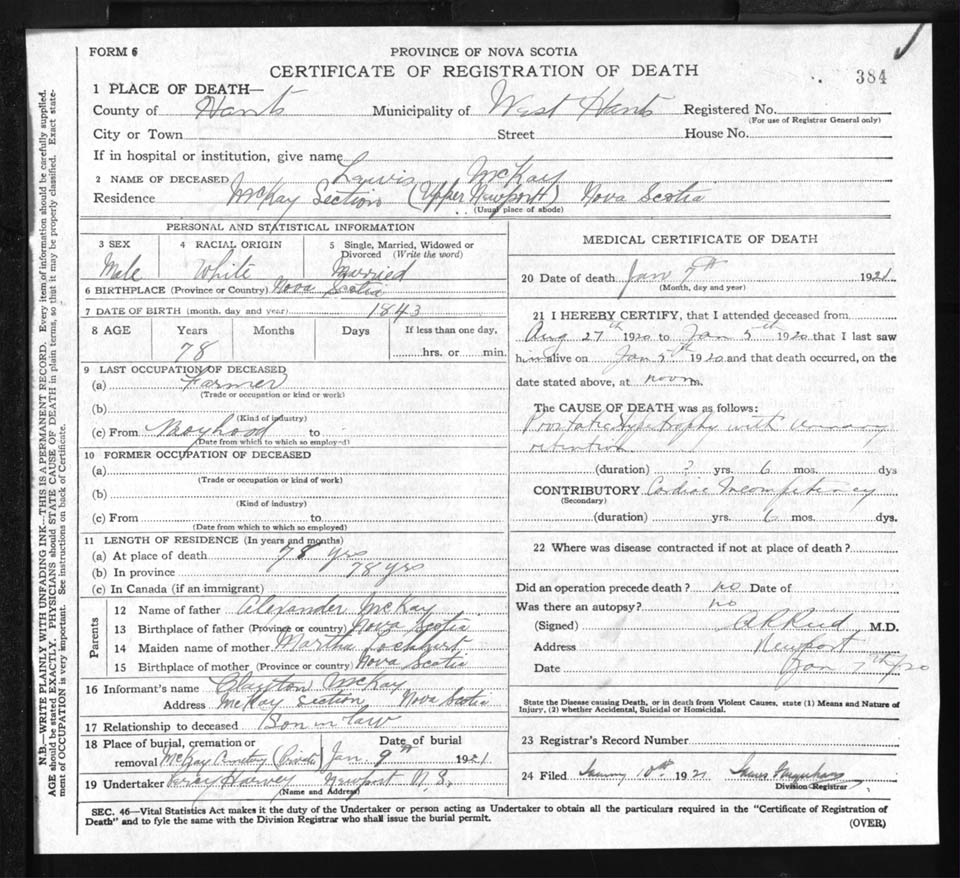 FORM 6
PROVINCE OF NOVA SCOTIA
CERTIFICATE OF REGISTRATION OF DEATH
384
1 PLACE OF DEATH—
County of Hants Municipality of West Hants Registered No.
(For use of Registrar General only)
City or Town Street House No.
If in hospital or institution, give name
2 NAME OF DECEASED Lewis McKay
Residence McKay Section (Upper Newport) Nova Scotia
(Usual place of abode)
PERSONAL AND STATISTICAL INFORMATION
3 SEX 4 RACIAL ORIGIN 5 Single, Married, Widowed or Divorced (Write the word)
Male White Married
6 BIRTHPLACE (Province or Country) Nova Scotia
7 DATE OF BIRTH (month, day and year) 1843
8 AGE Years Months Days If less than one day,
78 hrs. or min.
9 LAST OCCUPATION OF DECEASED
(a) Farmer
(Trade or occupation or kind or work)
(b)
(Kind of industry)
(c) From Boyhood to
(Date from which to which so employed)
10 FORMER OCCUPATION OF DECEASED
(a)
(Trade or occupation or kind of work)
(b)
(Kind of industry)
(c) From to
(Date from which to which so employed)
11 LENGTH OF RESIDENCE (In years and months)
(a) At place of death 78 yrs
(b) In province 78 yrs
(c) In Canada (if an immigrant)
Parents
12 Name of father Alexander McKay
13 Birthplace of father (Province or country) Nova Scotia
14 Maiden name of mother Martha Lockhart
15 Birthplace of mother (Province or country) Nova Scotia
16 Informant's name Clayton McKay
Address McKay Section Nova Scotia
17 Relationship to deceased Son in law
18 Place of burial, cremation or removal McKay Cemetery (Private) Date of burial Jan. 9th 1921
19 Undertaker Percy Harvey Newport N.S.
(Name and Address)
MEDICAL CERTIFICATE OF DEATH
20 Date of death Jan 7th 1921
(Month, day and year)
21 I HEREBY CERTIFY, that I attended deceased from
Aug 27th 1920 to Jan 5th 1920 that I last saw
him alive on Jan 5th 1920 and that death occurred, on the
date stated above, at noon m.
The CAUSE OF DEATH was as follows:
Prostatic Hypertrophy with urinary
retention
(duration) ? yrs. 6 mos. dys
CONTRIBUTORY Cardiac Incompetency
(Secondary)
(duration) yrs. 6 mos. dys.
22 Where was disease contracted if not at place of death?
Did an operation precede death? no Date of
Was there an autopsy? no
(Signed) A R Reid M.D.
Address Newport
Date Jan 7th 20
State the Disease causing Death, or in death from Violent Causes, state (1) Means and Nature of
Injury, (2) whether Accidental, Suicidal or Homicidal.
23 Registrar's Record Number
24 Filed January 10th 1921
Division Registrar
SEC. 46—Vital Statistics Act makes it the duty of the Undertaker or person acting as Undertaker to obtain all the particulars required in the "Certificate of Registration of
Death" and to fyle the same with the Division Registrar who shall issue the burial permit.
(OVER)
N.B.—WRITE PLAINLY WITH UNFADING INK—THIS IS A PERMANENT RECORD. Every item of information should be carefully supplied.
AGE should be stated EXACTLY. PHYSICIANS should STATE CAUSE OF DEATH in plain terms, so that it may be properly classified. Exact state-
ment of OCCUPATION is very important. See instructions on back of Certificate.